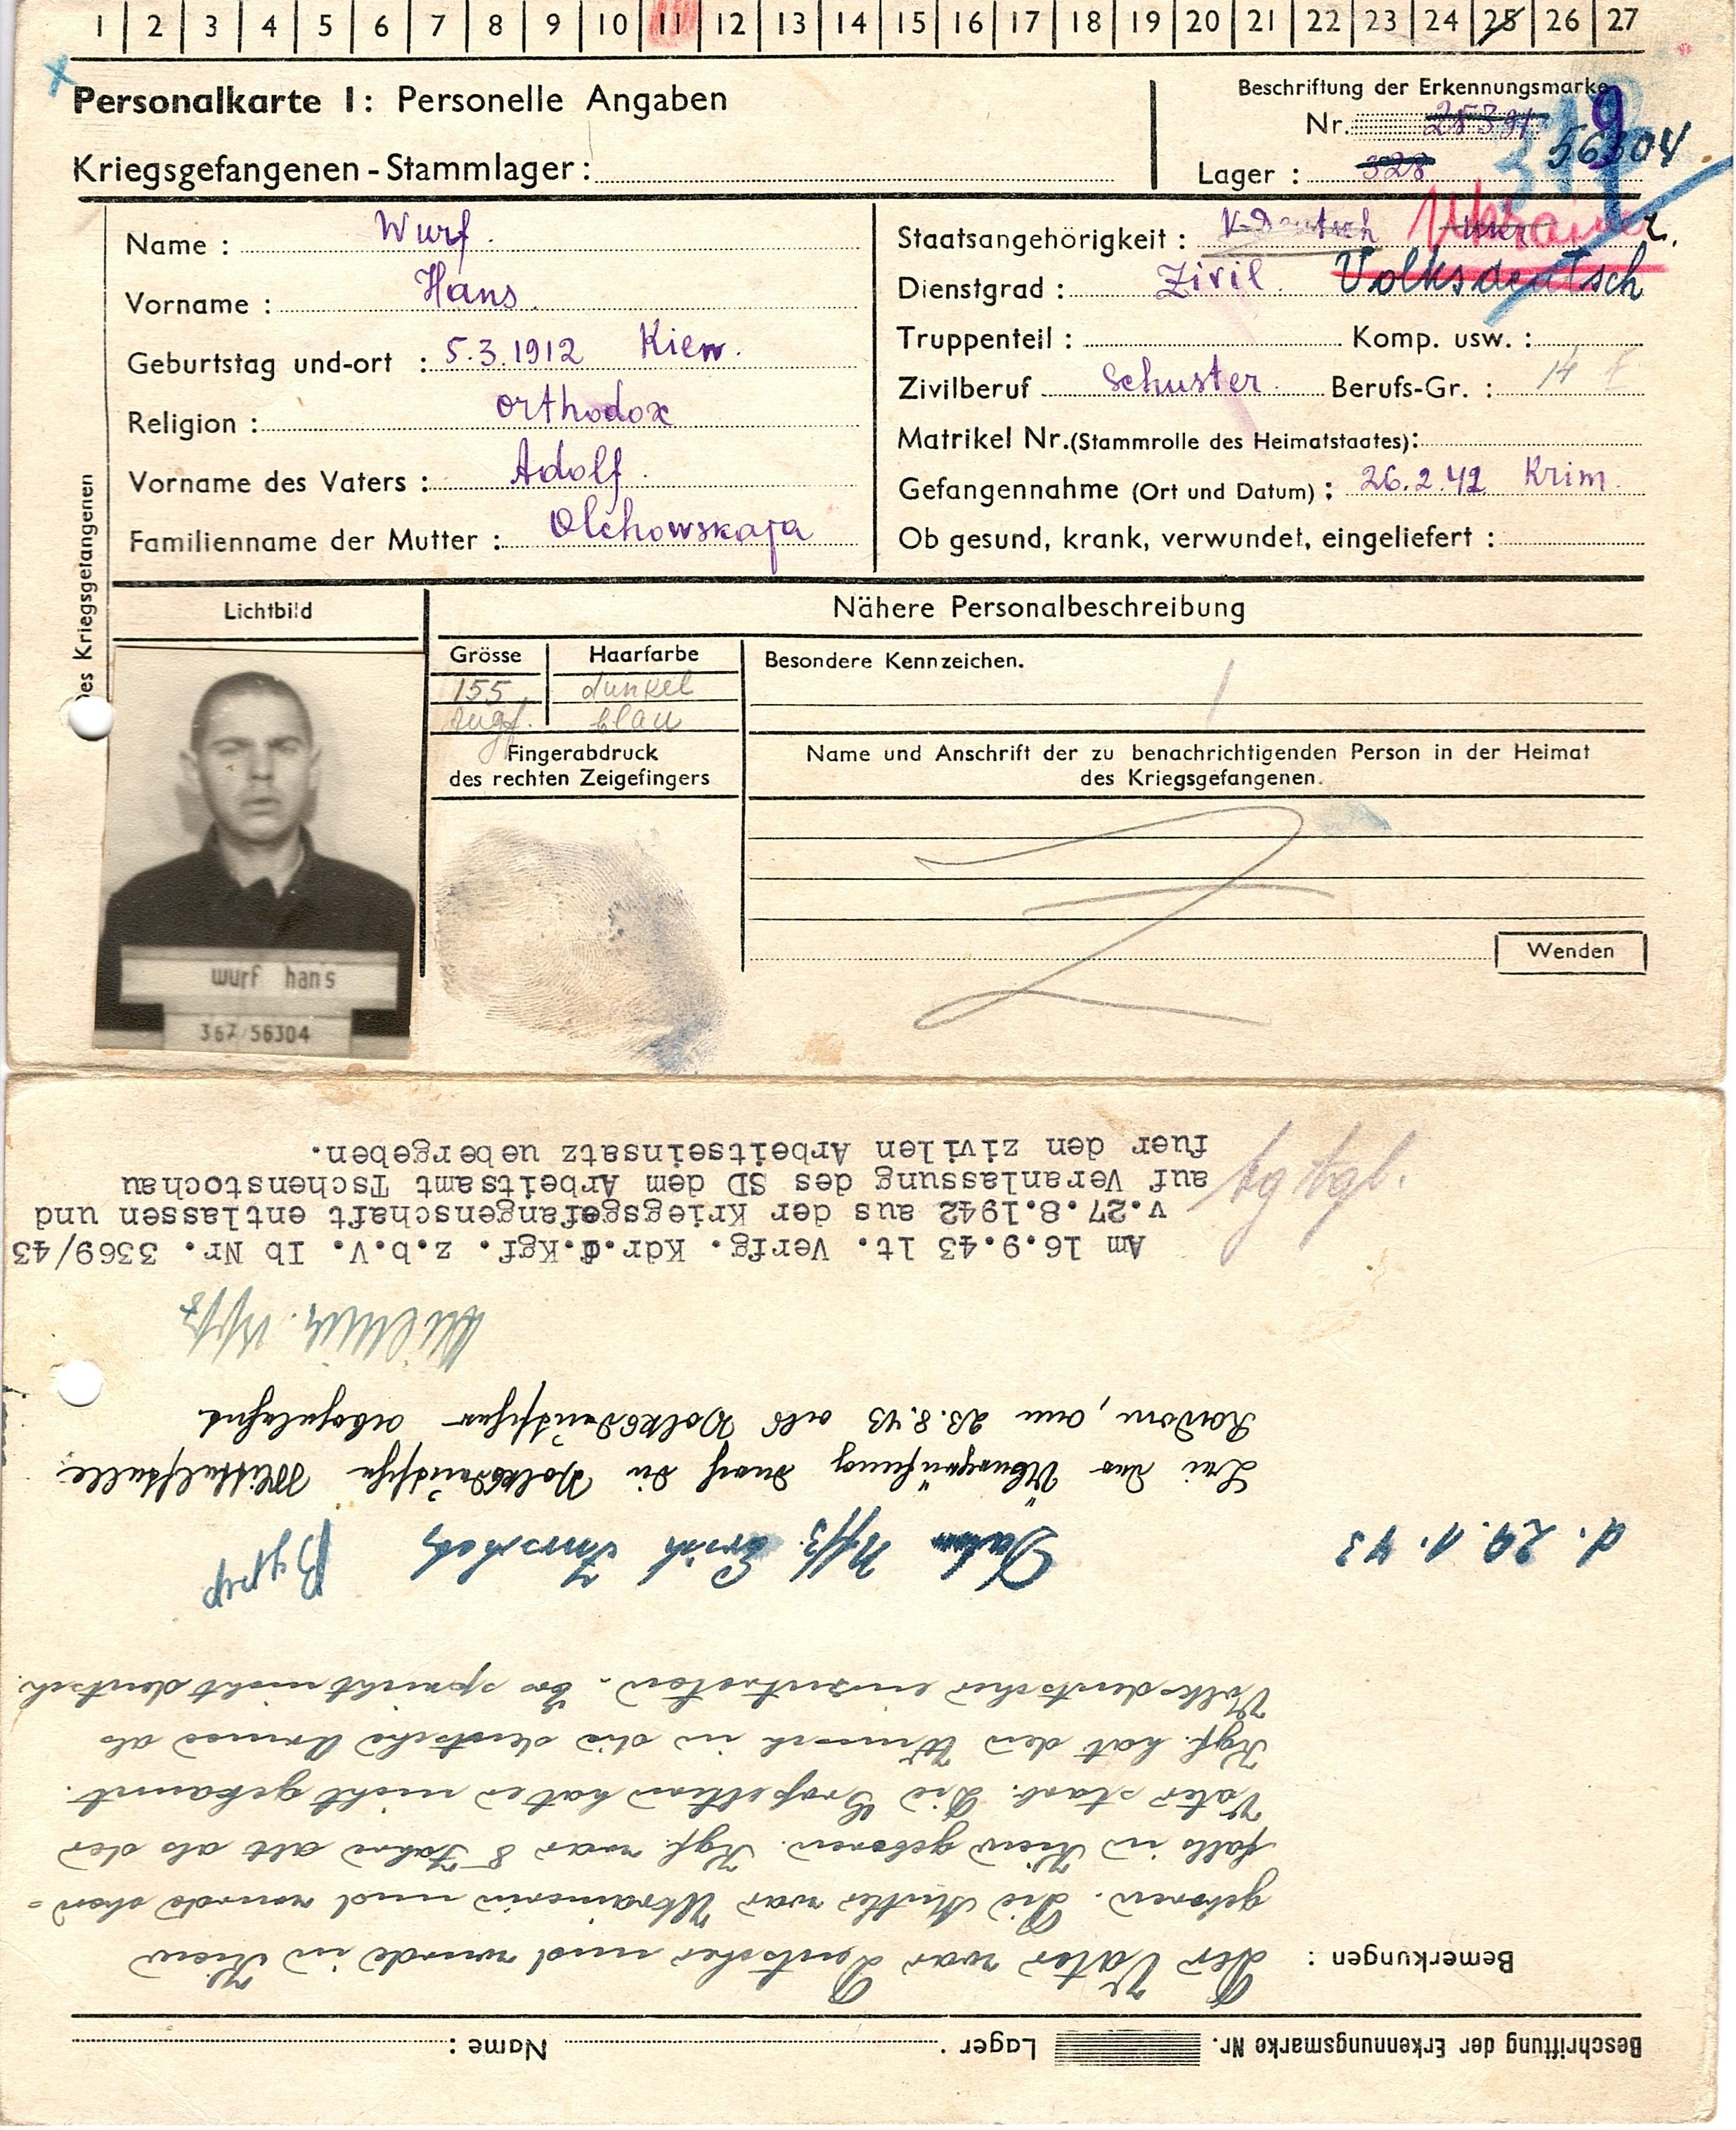 1 2 3 4 5 6 7 8 9 10 11 12 13 14 15 16 17 18 19 20 21 22 23 24 25 26 27
Personalkarte I: Personelle Angaben
Kriegsgefangenen-Stammlager:
Beschriftung der Erkennungsmarke
Nr. 56304
Lager: 328
367
des Kriegsgefangenen
Name: Wurf
Vorname: Hans
Geburtstag und-ort: 5.3.1912 Kiew
Religion: orthodox
Vorname des Vaters: Adolf
Familienname der Mutter: Olchowskaja
Staatsangehörigkeit: V-Deutsch Ukrainer
Dienstgrad: Zivil Volksdeutsch
Truppenteil: Komp. usw.:
Zivilberuf Schuster Berufs-Gr.: 14
Matrikel Nr. (Stammrolle des Heimatstaates):
Gefangennahme (Ort und Datum): 26.2.42 Krim
Ob gesund, krank, verwundet, eingeliefert:
Lichtbild
Nähere Personalbeschreibung
Grösse Haarfarbe
155 dunkel
blau
Besondere Kennzeichen.
Fingerabdruck
des rechten Zeigefingers
Name und Anschrift der zu benachrichtigenden Person in der Heimat
des Kriegsgefangenen.
Wenden
wurf hans
367 56304
Beschriftung der Erkennungsmarke Nr. Lager: Name:
Bemerkungen: Der Vater war Deutscher und wurde in Kiew
geboren. Die Mutter war Ukrainerin und wurde eben=
falls in Kiew geboren. Kgf. war 8 Jahre alt als der
Vater starb. Die Großeltern hat er nicht gekannt.
Kgf. hat den Wunsch in die deutsche Armee als
Volksdeutscher einzutreten. Er spricht nicht deutsch.
d. 29.1.43 Uffz. Erich
Bei der Überprüfung durch die Volksdeutsche Mittelstelle
Radom, am 23.8.43 als Volksdeutscher abgelehnt
Uffz
Am 16.9.43 lt. Verfg. Kdr.d.Kgf. z.b.V. Ib Nr. 3369/43
v.27.8.1942 aus der Kriegsgefangenschaft entlassen und
auf Veranlassung des SD dem Arbeitsamt Tschenstochau
fuer den zivilen Arbeitseinsatz uebergeben.